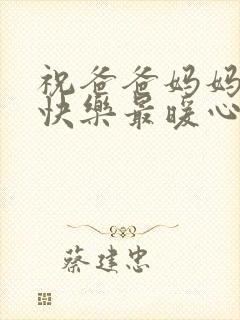 祝爸爸妈妈
快樂最暖心
蔡建忠